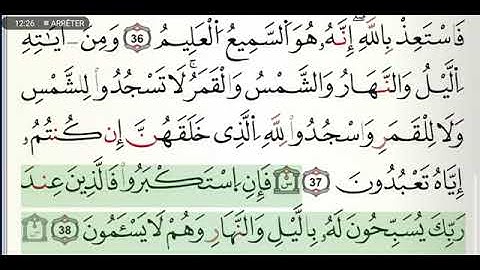 12:26 ■ ARRÊTER
فَاسْتَعِذْ بِاللَّهِ إِنَّهُ هُوَ السَّمِيعُ الْعَلِيمُ 36 وَمِنَ ـايَـٰتِهِ
اِ۬ليْلُ وَالنَّهَارُ وَالشَّمْسُ وَالْقَمَرُ لَا تَسْجُدُواْ لِلشَّمْسِ
وَلَا لِلْقَمَرِ وَاسْجُدُواْ لِلهِ اِ۬لذِى خَلَقَهُنَّ إِن كُنتُمُۥ
إِيَّاهُ تَعْبُدُونَ 37 فَإِنِ اِسْتَكْبَرُواْ فَالذِينَ عِندَ
رَبِّكَ يُسَبِّحُونَ لَهُۥ بِاليْلِ وَالنَّهَارِ وَهُمْ لَا يَسْـَٔمُونَ 38